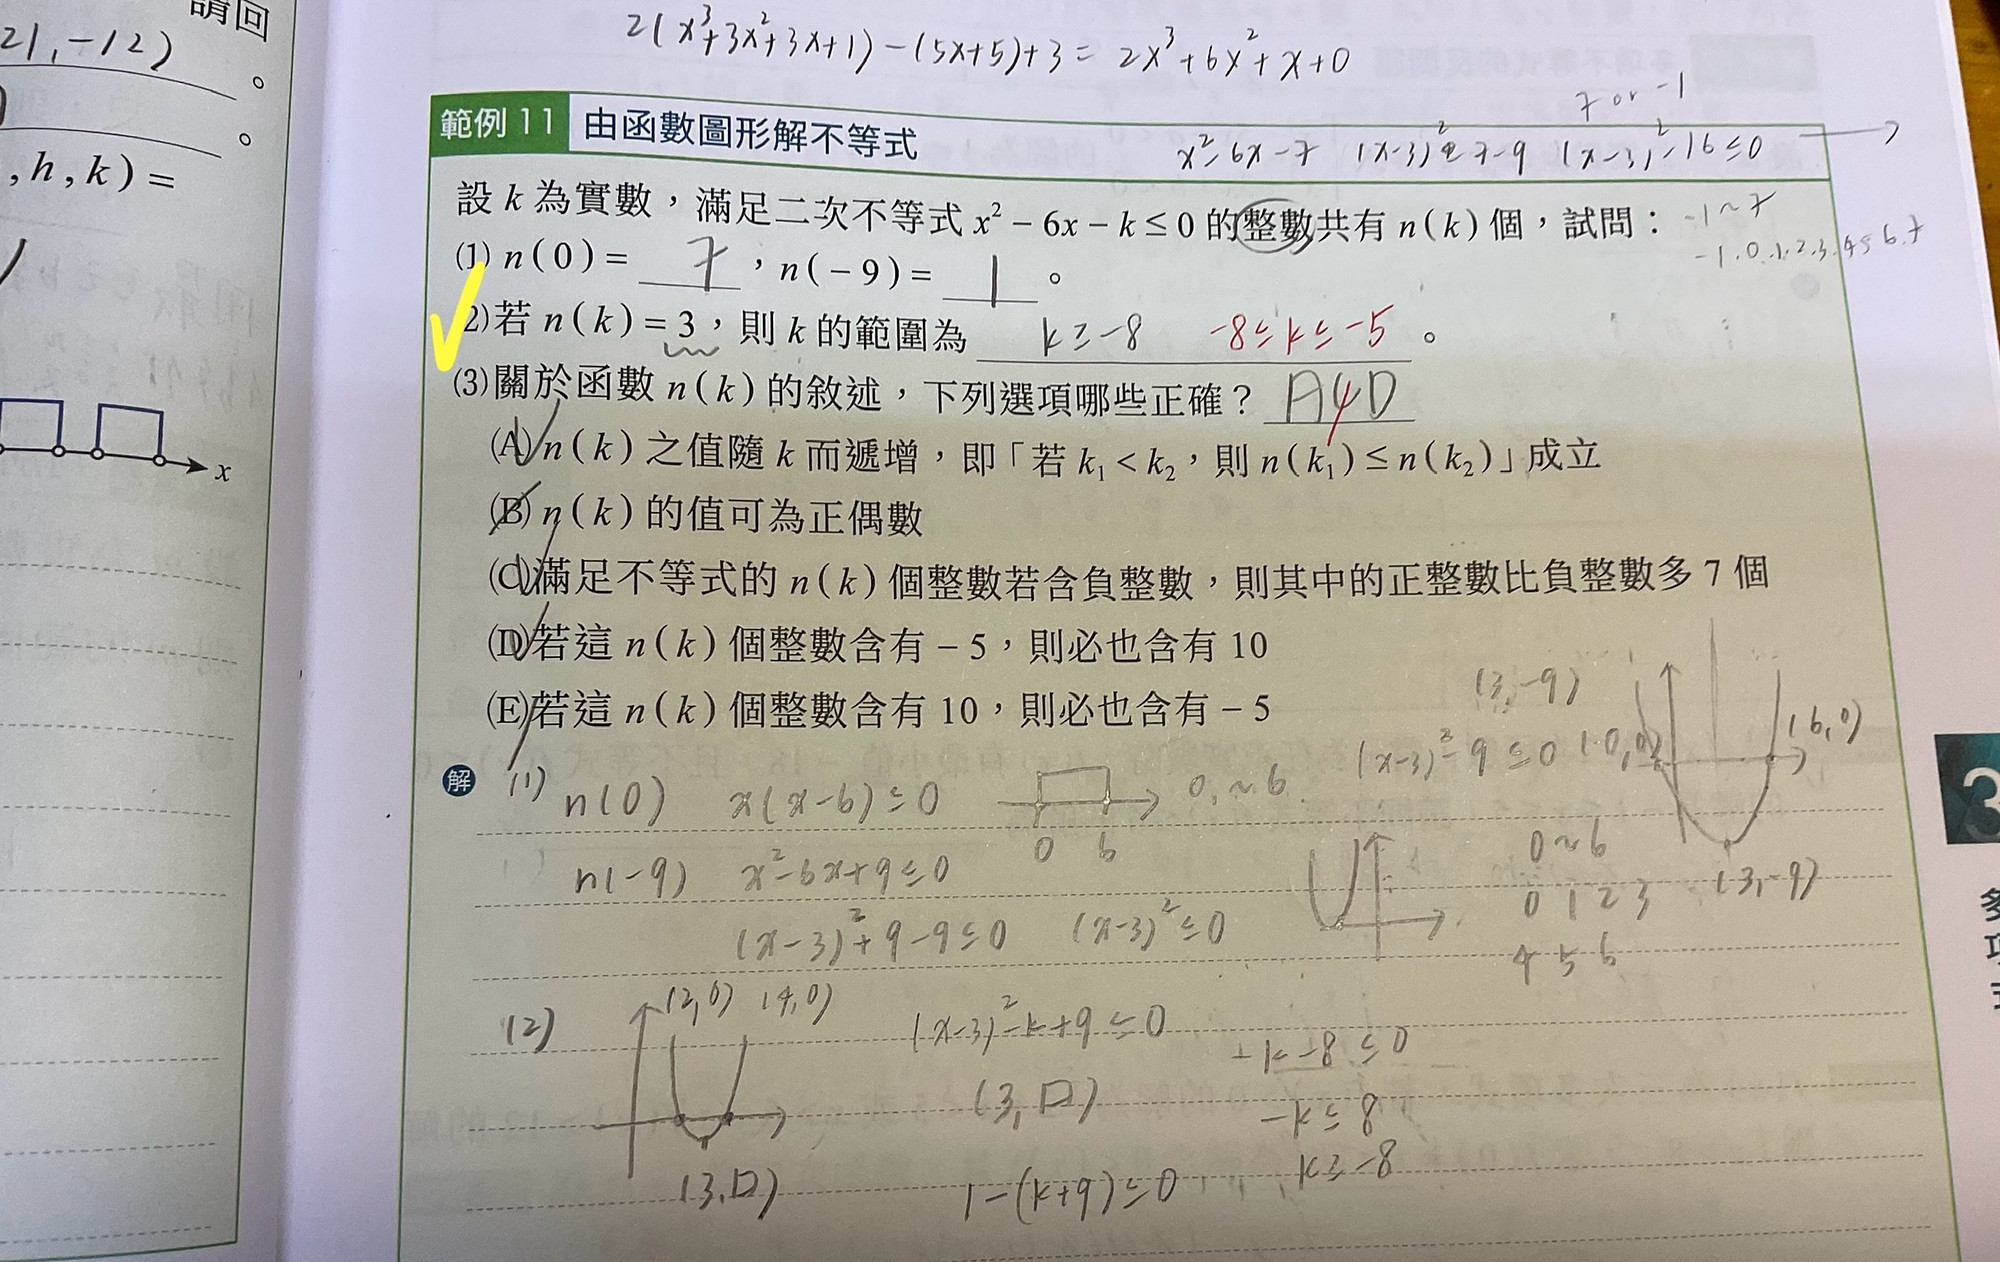 請回
21,-12)
。
。
,h,k)=
x
2(x³+3x²+3x+1)-(5x+5)+3=2x³+6x²+x+0
範例 11 由函數圖形解不等式
7 or -1
x²-6x-7 (x-3)² (x-3)²-16≤0
設 k 為實數，滿足二次不等式 x²-6x-k≤0 的整數共有 n(k) 個，試問：
-1~7
-1.0.1.2.3.4.5 6.7
(1) n(0)= 7 ，n(-9)= 1 。
2)若 n(k)=3，則 k 的範圍為 k≥-8 -8≤k≤-5 。
(3)關於函數 n(k) 的敘述，下列選項哪些正確？ A D
(A) n(k) 之值隨 k 而遞增，即「若 k₁<k₂，則 n(k₁)≤n(k₂)」成立
(B) n(k) 的值可為正偶數
(C)滿足不等式的 n(k) 個整數若含負整數，則其中的正整數比負整數多 7 個
(D)若這 n(k) 個整數含有 -5，則必也含有 10
(E)若這 n(k) 個整數含有 10，則必也含有 -5
(3,-9)
(x-3)²-9≤0
(6,0)
(3,-9)
解 (1) n(0) x(x-6)≤0 0,~6
0 6
n(-9) x²-6x+9≤0
0~6
0 1 2 3
4 5 6
(x-3)²+9-9≤0 (x-3)²≤0
(2) (2,0) (4,0) (x-3)²-k+9≤0
-k-8≤0
(3,口)
-k≤8
(3,口) 1-(k+9)≤0 k≥-8
3